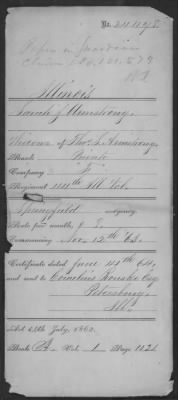 No. 24.119/8
Papers in Guardian
Claim No. 101,575
Illinois
Sarah J Armstrong,
Widow of Thos. L. Armstrong,
Rank Private
Company "F"
Regiment 114th Ill Vol.
Springfield agency.
Rate per month, $ 8.
Commencing Nov. 12th 63.
Certificate dated June 4th 64,
and sent to Cornelius Rourke Esq
Petersburg,
Ill.
Act 14th July, 1862.
Book A Vol. 1 Page 112